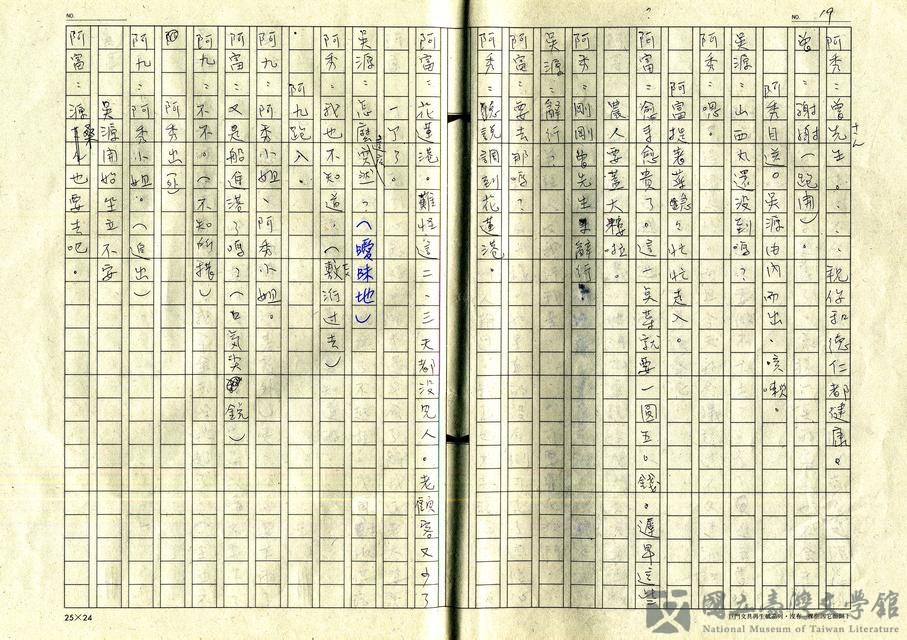 NO. 19
阿秀：曾先生。．．祝你和德仁都健康。
さん
曾：謝謝（跑開）。
阿秀目送。吳源由內而出，咳嗽。
吳源：山西丸還沒到嗎？
阿秀：嗯。
阿富提著菜急忙忙走入。
阿富：愈來愈貴了。這一點菜就要一圓五。錢。遲早這些
農人要蓋大樓啦。
阿秀：剛剛曾先生來辭行。
吳源：辭行？
阿富：要去那嗎？
阿秀：聽說調到花蓮港。
阿富：花蓮港。難怪這二、三天都沒見人。老顧客又少了
一了了。
吳源：怎麼突然？（曖昧地）
這麼
阿秀：我也不知道。（敷衍過去）
阿九跑入。
阿九：阿秀小姐、阿秀小姐。
阿富：又是船進港了嗎？（口氣尖銳）
阿九：不不。（不知所措）
阿秀出（外）
阿九：阿秀小姐。（追出）
吳源開始坐立不安
阿富：源桑也要去吧。
NO.
25×24
國立臺灣文學館
National Museum of Taiwan Literature